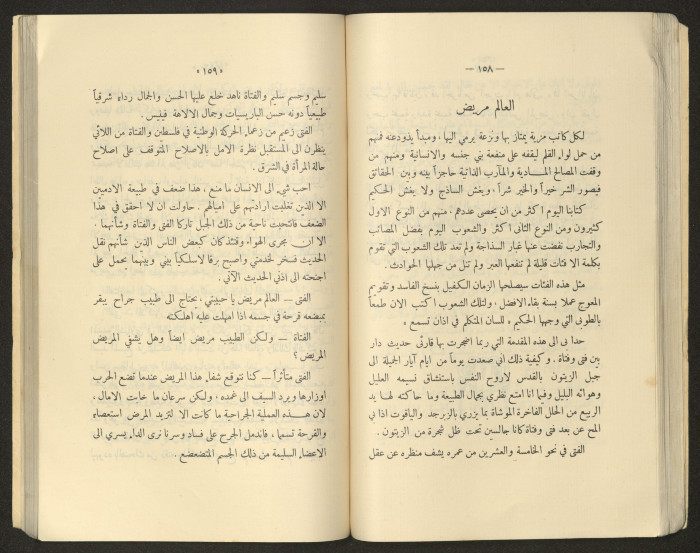 — ١٥٨ —
العالم مريض
لكل كاتب مزية يمتاز بها ونزعة يرمي اليها ، ومبدأ يذود عنه فمنهم
من حمل لواء القلم ليقفه على منفعة بني جنسه والانسانية ومنهم من
وقفت المصالح المادية والمآرب الذاتية حاجزاً بينه وبين الحقائق
فيصور الشر خيراً والخير شراً ، ويغش الساذج ولا يغش الحكيم
كتابنا اليوم اكثر من ان يحصى عددهم ، منهم من النوع الاول
كثيرون ومن النوع الثاني اكثر والشعوب اليوم بفضل المصائب
والتجارب نفضت عنها غبار السذاجة ولم تعد تلك الشعوب التي تقوم
بكلمة الا فئات قليلة لم تنفعها العبر ولم تنل من جهلها الحوادث .
مثل هذه الفئات سيصلحها الزمان الكفيل بنسخ الفاسد وتقويم
المعوج عملا بسنة بقاء الافضل ، ولتلك الشعوب اكتب الان طمعاً
بالطوبى التي وجهها الحكيم « للسان المتكلم في اذان تسمع »
حدا بي الى هذه المقدمة التي ربما اضجرت بها قارئي حديث دار
بين فتى وفتاة . وكيفية ذلك أني صعدت يوماً من ايام آيار الجميلة الى
جبل الزيتون بالقدس لاروح النفس باستنشاق نسيمه العليل
وهوائه البليل وفيها انا امتع نظري بجمال الطبيعة وما حاكته لها يد
الربيع من الحلل الفاخرة الموشاة بما يزري بالزبرجد والياقوت اذا بي
المح عن بعد فتى وفتاة كانا جالسين تحت ظل شجرة من الزيتون .
الفتى في نحو الخامسة والعشرين من عمره يشف منظره عن عقل
« ١٥٩ »
سليم وجسم سليم والفتاة ناهد خلع عليها الحسن والجمال رداء شرقياً
طبيعياً دونه حسن الباريسيات وجمال الالاهة فينيس .
الفتى زعيم من زعماء الحركة الوطنية في فلسطين والفتاة من اللائي
ينظرن الى المستقبل نظرة الامل بالاصلاح المتوقف على اصلاح
حالة المرأة في الشرق .
احب شيء الى الانسان ما منع ، هذا ضعف في طبيعة الادميين
الا الذين تغلبت ارادتهم على اميالهم . حاولت ان لا احقق في هذا
الضعف فانتحيت ناحية من ذلك الجبل تاركا الفتى والفتاة وشأنهما .
الا ان مجرى الهواء وقتئذ كان كبعض الناس الذين شأنهم نقل
الحديث فسخر لخدمتي واصبح برقا لاسلكياً بيني وبينهما يحمل على
اجنحته الى اذني الحديث الآتي .
الفتى — العالم مريض يا حبيبتي ، يحتاج الى طبيب جراح يبقر
بمبضعه قرحة في جسمه اذا امهلت عليه اهلكته
الفتاة — ولكن الطبيب مريض ايضاً وهل يشفي المريض
المريض ؟
الفتى متأثراً — كنا نتوقع شفاء هذا المريض عندما تضع الحرب
اوزارها ويرد السيف الى غمده ، ولكن سرعان ما خابت الامال ،
لان هذه العملية الجراحية ما كانت الا لتزيد المرض استعصاء
والقرحة تسمما ، فاندمل الجرح على فساد وسرنا نرى الداء يسري الى
الاعضاء السليمة من ذلك الجسم المتضعضع .